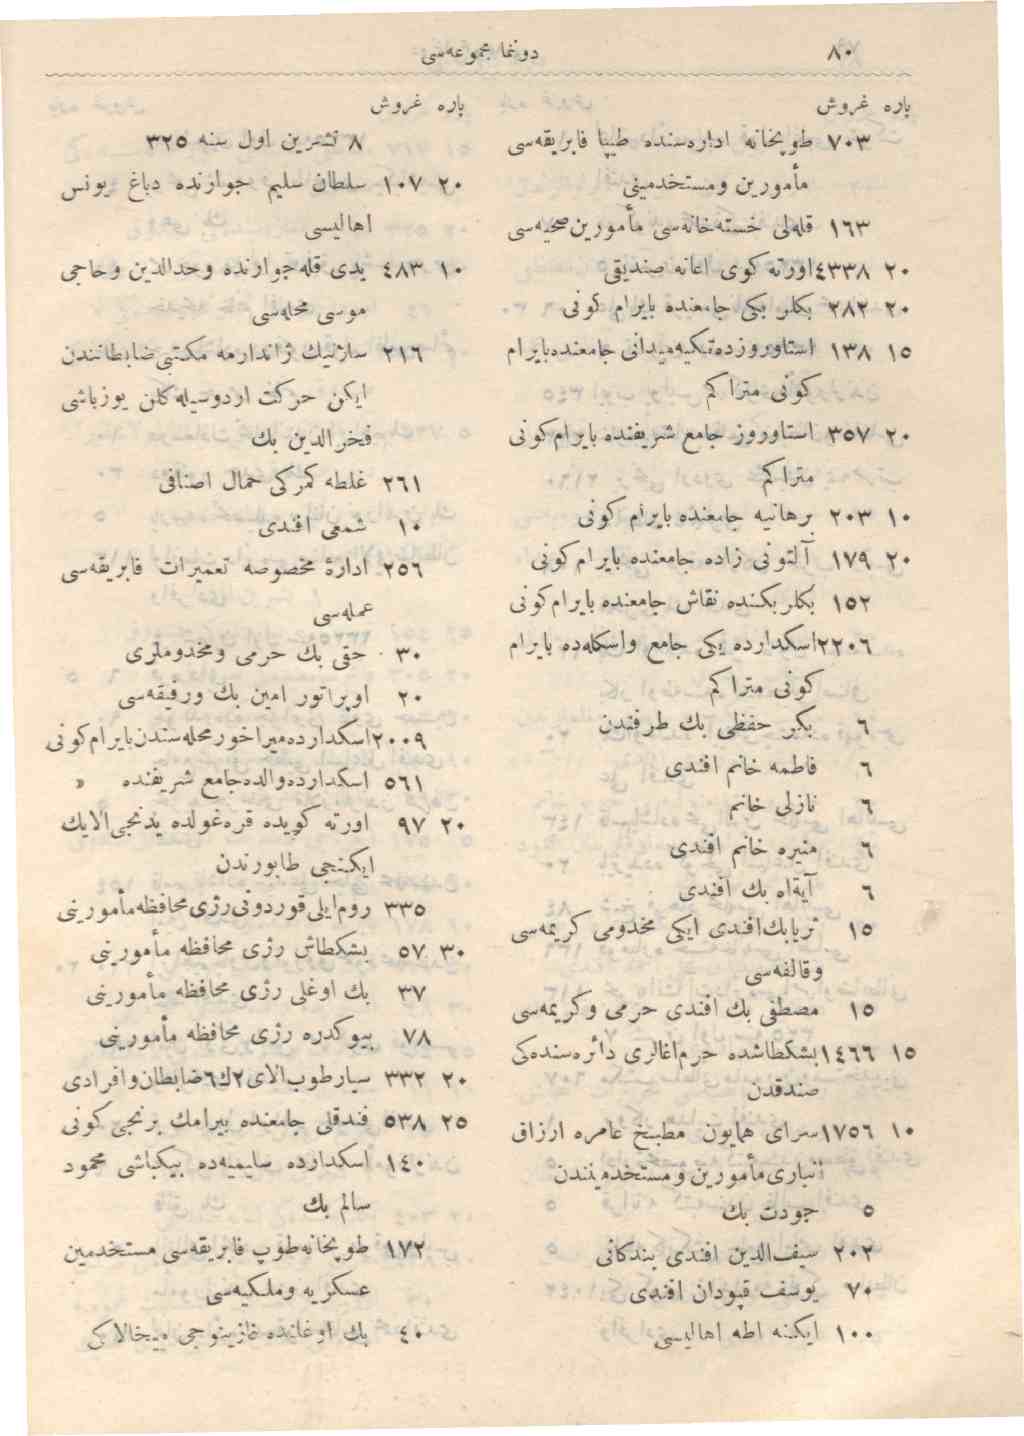 ٨٠
دونمـا مجموعه‌سی
پاره غروش
٧٠٣ طوپخانه اداره‌سنده طپپا فابریقه‌سی
مأمورین ومستخدمینی
١٦٣ قله‌لی خسته‌خانه‌سی مأمورین صحیه‌سی
٢٠ ٤٣٣٨ اورته کوی اعانه صندیقی
٢٠ ٢٨٢ بکلر بکی جامعنده بایرام کونی
١٥ ١٣٨ استاوروزده تکیه میدانی جامعنده بایرام
کونی متراکم
٢٠ ٣٥٧ استاوروز جامع شریفنده بایرام کونی
متراکم
١٠ ٢٠٣ برهانیه جامعنده بایرام کونی
٢٠ ١٧٩ آلتونی زاده جامعنده بایرام کونی
١٥٢ بکلر بکنده نقاش جامعنده بایرام کونی
٢٢٠٦ اسکدارده یکی جامع واسکله‌ده بایرام
کونی متراکم
٦ بکر حفظی بك طرفندن
٦ فاطمه خانم افندی
٦ نازلی خانم
٦ منیره خانم افندی
٦ آیة‌اه بك افندی
١٥ ثریابك افندی ایکی مخدومی کریمه‌سی
وقالفه‌سی
١٥ مصطفی بك افندی حرمی وکریمه‌سی
١٥ ١٤٦٦ بشکطاشده حرم اغالری دائره‌سنده‌کی
صندقدن
١٠ ١٧٥٦ سرای همایون مطبخ عامره ارزاق
انباری مأمورین ومستخدمیندن
٥ جودت بك
٢٠٢ سیف‌الدین افندی بندکانی
٧٠ یوسف قپودان افندی
١٠٠ ایکنه اطه اهالیسی
پاره غروش
٨ تشرین اول سنه ٣٢٥
٢٠ ١٠٧ سلطان سلیم جوارنده دباغ یونس
اهالیسی
١٠ ٤٨٣ یدی قله جوارنده وحدالدین وحاجی
موسی محله‌سی
٢١٦ سلانیك ژاندارمه مکتبی ضابطانندن
ایکن حرکت اردوسیله کلن یوزباشی
فخرالدین بك
٢٦١ غلطه کمرکی حمال اصنافی
١٠ شمعی افندی
٢٥٦ ادارۀ مخصوصه تعمیرات فابریقه‌سی
عمله‌سی
٣٠ حقی بك حرمی ومخدوملری
٢٠ اوپراتور امین بك ورفیقه‌سی
٢٠٠٩ اسکدارده میراخور محله‌سندن بایرام کونی
٥٦١ اسکدارده والده جامع شریفنده »
٢٠ ٩٧ اورته کویده قره‌غولده یدنجی الایك
ایکنجی طابورندن
٣٣٥ روم‌ایلی قوردونی رژی محافظه مأمورینی
٣٠ ٥٧ بشکطاش رژی محافظه مأمورینی
٣٧ بك اوغلی رژی محافظه مأمورینی
٧٨ بیوکدره رژی محافظه مأمورینی
٢٠ ٣٣٢ سیار طوب الای ٢ك ٦ ضابطان وافرادی
٢٥ ٥٣٨ فندقلی جامعنده بیرامك برنجی کونی
١٤٠ اسکدارده سلیمیه‌ده بیکباشی محمود
سالم بك
١٧٢ طوپخانه طوپ فابریقه‌سی مستخدمین
عسکریه وملکیه‌سی
٤٠ بك اوغلنده غازینوجی میخالاکی